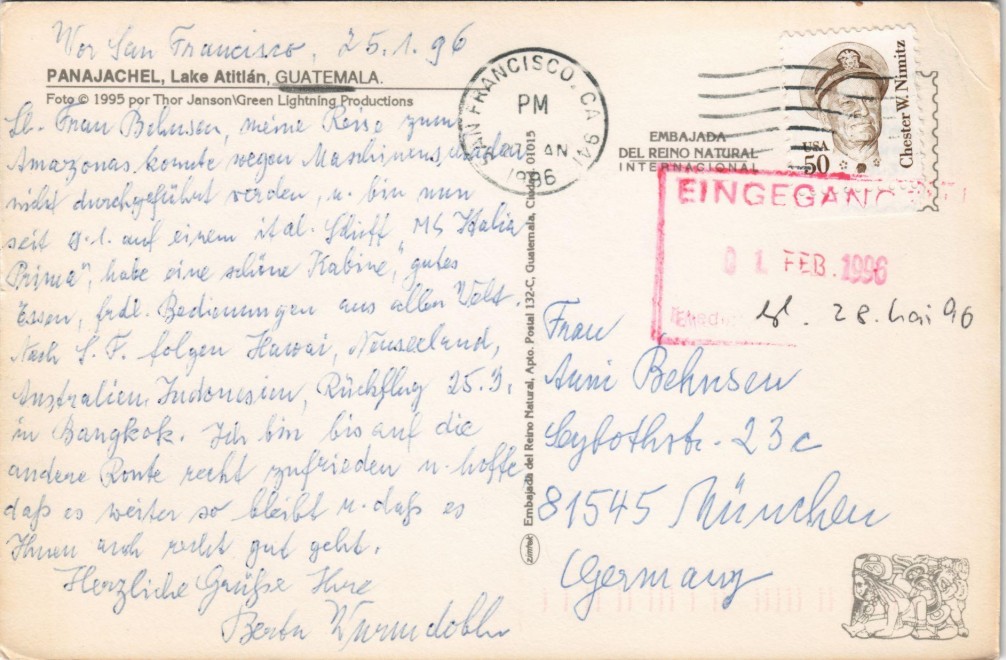 Vor San Francisco, 25.1.96
PANAJACHEL, Lake Atitlán, GUATEMALA.
Foto © 1995 por Thor Janson\Green Lightning Productions
Lb. Frau Behnsen, meine Reise zum
Amazonas konnte wegen Maschinenschaden
nicht durchgeführt werden, u. bin nun
seit 9.1. auf einem ital. Schiff "MS Italia
Prima", habe eine schöne Kabine, gutes
Essen, frdl. Bedienungen aus aller Welt.
Nach S.F. folgen Hawai, Neuseeland,
Australien, Indonesien, Rückflug 25.3.
in Bangkok. Ich bin bis auf die
andere Route recht zufrieden u. hoffe,
daß es weiter so bleibt u. daß es
Ihnen auch recht gut geht.
Herzliche Grüße Ihre
Berta
Embajada del Reino Natural, Apto. Postal 132-C, Guatemala, Ciudad 01015
SAN FRANCISCO, CA 941
PM
AN
1996
EMBAJADA
DEL REINO NATURAL
INTERNACIONAL
USA
50
Chester W. Nimitz
EINGEGANGEN
01. FEB. 1996
28. Mai 96
Frau
Anni Behnsen
Seybothstr. 23c
81545 München
Germany